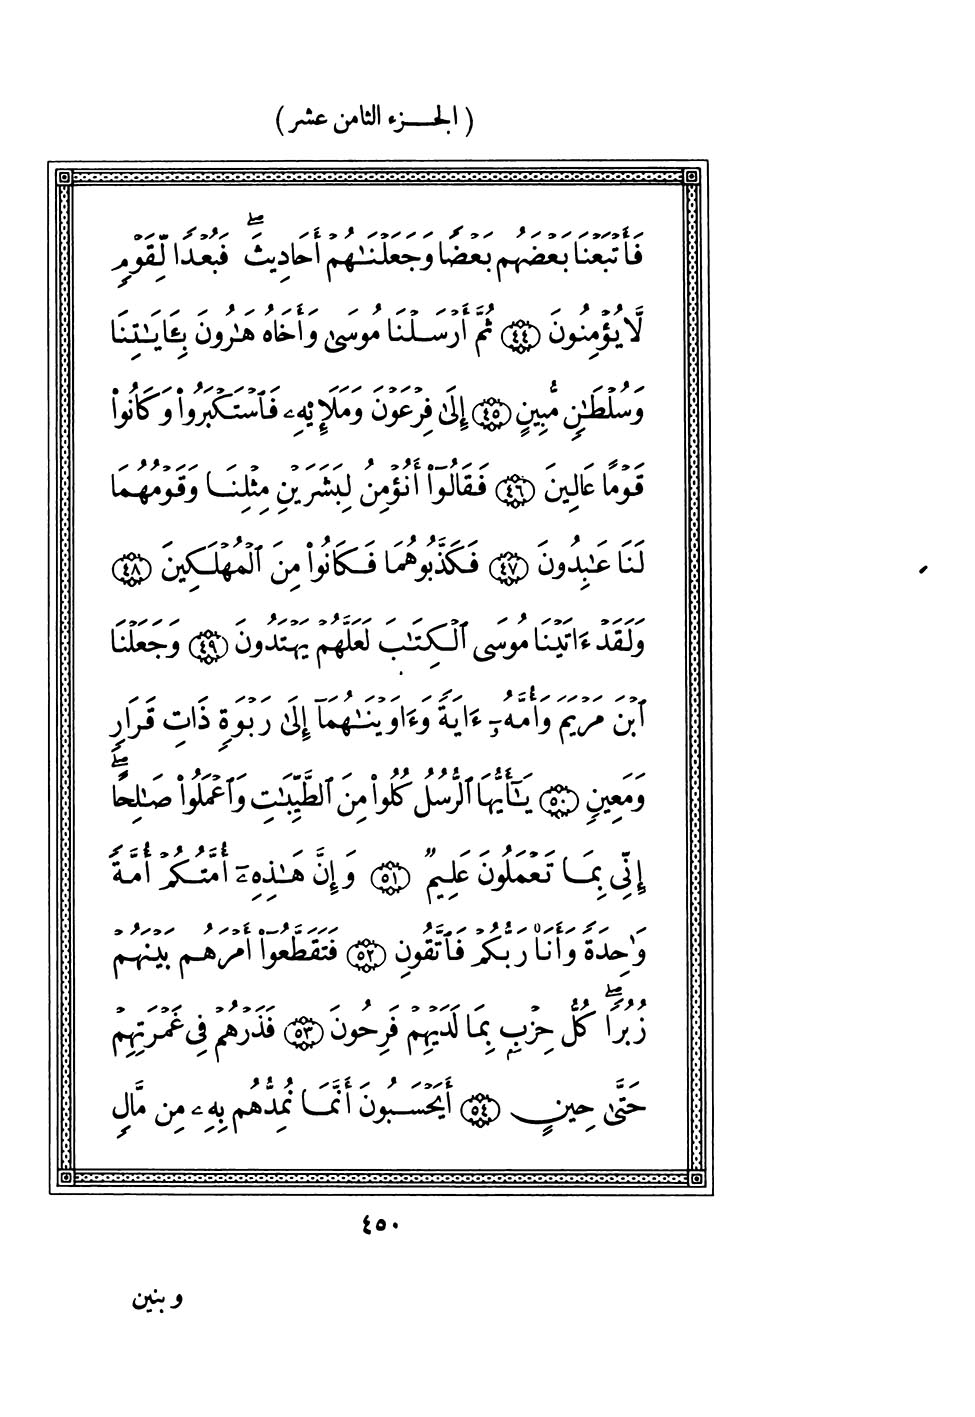 ( الجزء الثامن عشر )
فَأَتْبَعْنَا بَعْضَهُم بَعْضًا وَجَعَلْنَـٰهُمْ أَحَادِيثَ ۖ فَبُعْدًا لِّقَوْمٍ
لَّا يُؤْمِنُونَ ﴿٤٤﴾ ثُمَّ أَرْسَلْنَا مُوسَىٰ وَأَخَاهُ هَـٰرُونَ بِـَٔايَـٰتِنَا
وَسُلْطَـٰنٍ مُّبِينٍ ﴿٤٥﴾ إِلَىٰ فِرْعَوْنَ وَمَلَإِيْهِۦ فَٱسْتَكْبَرُوا۟ وَكَانُوا۟
قَوْمًا عَالِينَ ﴿٤٦﴾ فَقَالُوٓا۟ أَنُؤْمِنُ لِبَشَرَيْنِ مِثْلِنَا وَقَوْمُهُمَا
لَنَا عَـٰبِدُونَ ﴿٤٧﴾ فَكَذَّبُوهُمَا فَكَانُوا۟ مِنَ ٱلْمُهْلَكِينَ ﴿٤٨﴾
وَلَقَدْ ءَاتَيْنَا مُوسَى ٱلْكِتَـٰبَ لَعَلَّهُمْ يَهْتَدُونَ ﴿٤٩﴾ وَجَعَلْنَا
ٱبْنَ مَرْيَمَ وَأُمَّهُۥٓ ءَايَةً وَءَاوَيْنَـٰهُمَآ إِلَىٰ رَبْوَةٍ ذَاتِ قَرَارٍ
وَمَعِينٍ ﴿٥٠﴾ يَـٰٓأَيُّهَا ٱلرُّسُلُ كُلُوا۟ مِنَ ٱلطَّيِّبَـٰتِ وَٱعْمَلُوا۟ صَـٰلِحًا ۖ
إِنِّى بِمَا تَعْمَلُونَ عَلِيمٌ ﴿٥١﴾ وَإِنَّ هَـٰذِهِۦٓ أُمَّتُكُمْ أُمَّةً
وَٰحِدَةً وَأَنَا۠ رَبُّكُمْ فَٱتَّقُونِ ﴿٥٢﴾ فَتَقَطَّعُوٓا۟ أَمْرَهُم بَيْنَهُمْ
زُبُرًا ۖ كُلُّ حِزْبٍ بِمَا لَدَيْهِمْ فَرِحُونَ ﴿٥٣﴾ فَذَرْهُمْ فِى غَمْرَتِهِمْ
حَتَّىٰ حِينٍ ﴿٥٤﴾ أَيَحْسَبُونَ أَنَّمَا نُمِدُّهُم بِهِۦ مِن مَّالٍ
٤٥٠
وبنين